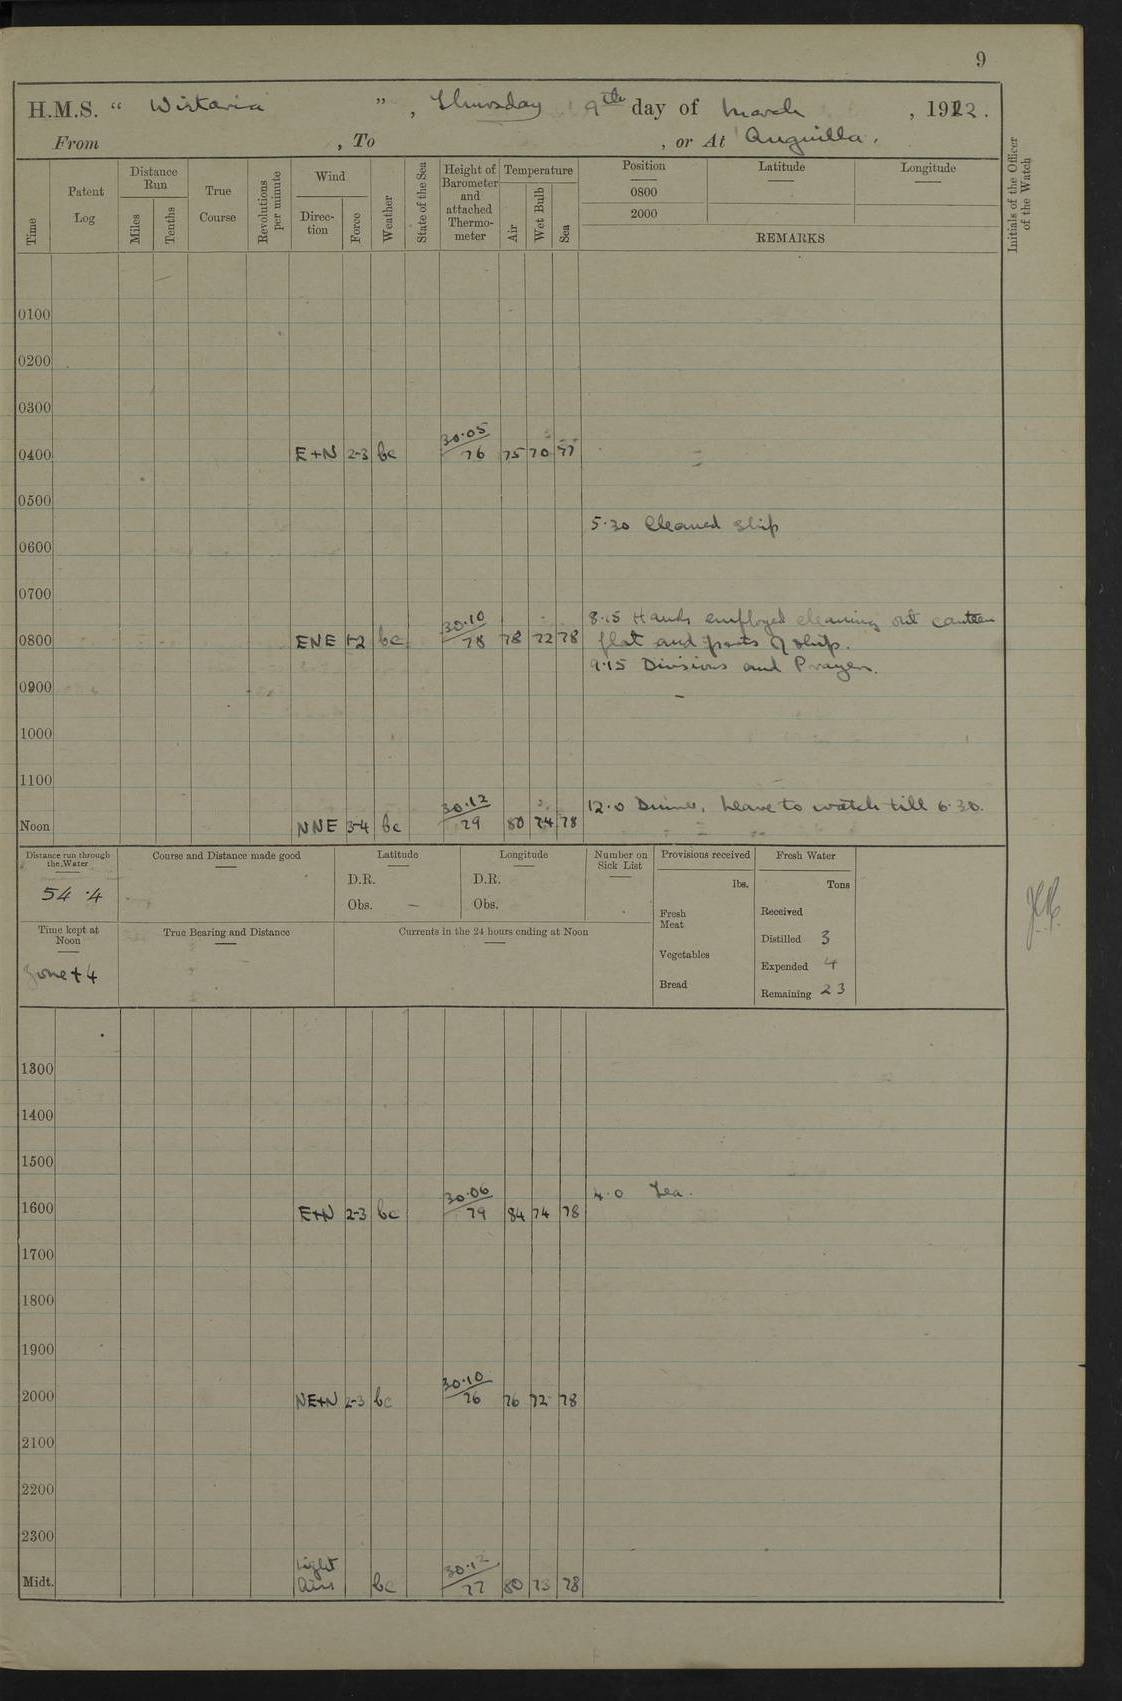 9
H.M.S. " Wistaria " , Thursday 9th day of March , 1922 .
From , To , or At Anguilla .
Time
Patent Log
Distance Run
Miles
Tenths
True Course
Revolutions per minute
Wind
Direc-tion
Force
Weather
State of the Sea
Height of Barometer and attached Thermo-meter
Temperature
Air
Wet Bulb
Sea
Position
0800
2000
Latitude
Longitude
REMARKS
Initials of the Officer of the Watch
0100
0200
0300
0400 E+N 2-3 bc 30.05 76 75 70 77
0500
5.30 Cleaned Ship
0600
0700
8.15 Hands employed cleaning out canteen
0800 ENE 1-2 bc 30.10 78 78 72 78 flat and parts of ship.
9.15 Divisions and Prayers.
0900
1000
1100
12.0 Dinner, Leave to watch till 6.30.
Noon NNE 3-4 bc 30.12 79 80 74 78
Distance run through the Water
54 .4
Course and Distance made good
Latitude
D.R.
Obs. —
Longitude
D.R.
Obs.
Number on Sick List
Provisions received
lbs.
Fresh Meat
Vegetables
Bread
Fresh Water
Tons
Received
Distilled 3
Expended 4
Remaining 23
Time kept at Noon
Zone + 4
True Bearing and Distance
Currents in the 24 hours ending at Noon
1300
1400
1500
4.0 Tea.
1600 E+N 2-3 bc 30.06 79 84 74 78
1700
1800
1900
2000 NE+N 2-3 bc 30.10 76 76 72 78
2100
2200
2300
Midt. Light Airs bc 30.12 77 80 73 78